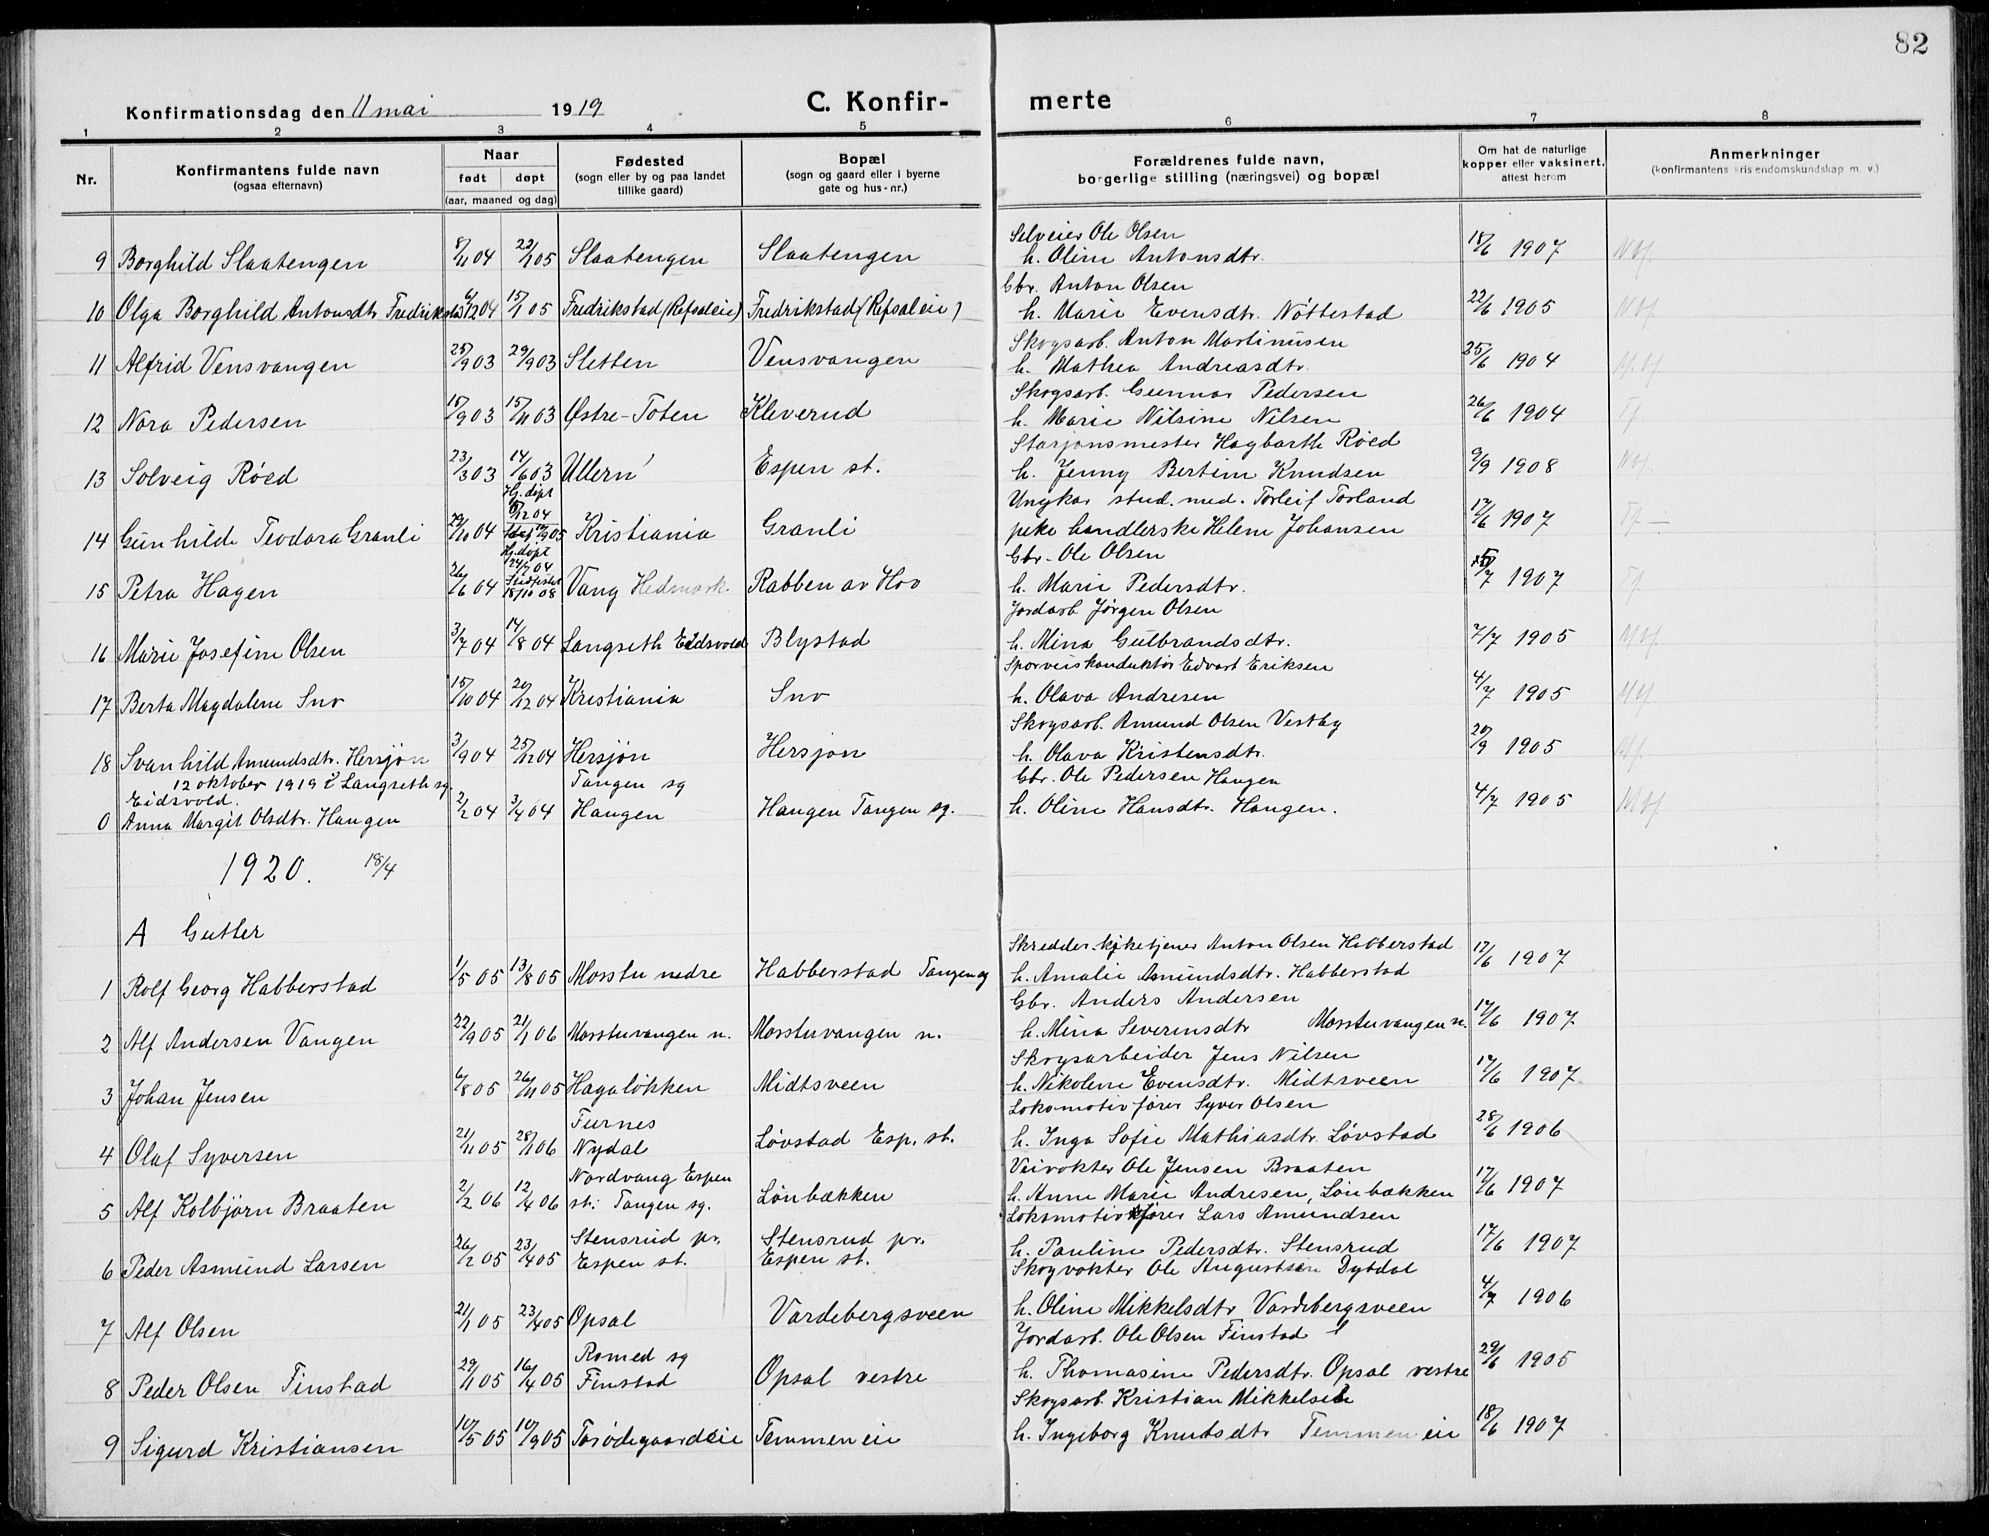 82
Konfirmationsdag den 11 mai 1919 C. Konfir- merte
1 2 3 4 5 6 7 8
Nr. Konfirmantens fulde navn (ogsaa efternavn) Naar født døpt (aar, maaned og dag) Fødested (sogn eller by og paa landet tillike gaard) Bopæl (sogn og gaard eller i byerne gate og hus-nr.) Forældrenes fulde navn, borgerlige stilling (næringsvei) og bopæl Om hat de naturlige kopper eller vaksinert, attest herom Anmerkninger (konfirmantens kristendomskundskap m. v.)
Selveier Ole Olsen
9 Borghild Slaatengen 8/11 04 22/1 05 Slaatengen Slaatengen h. Oline Antonsdtr. 18/6 1907
Gbr. Anton Olsen
10 Olga Borghild Antonsdtr Fredrikstad 6/12 04 15/1 05 Fredrikstad (Refsaleie) Fredrikstad (Refsaleie) h. Marie Evensdtr. Nöttestad 22/6 1905
Skogsarb. Anton Martinusen
11 Alfrid Vensvangen 25/9 03 29/9 03 Sletten Vensvangen h. Mathea Andreasdtr. 25/6 1904
Skogsarb. Gunnar Pedersen
12 Nora Pedersen 15/9 03 15/11 03 Østre-Toten Kleverud h. Marie Nilsine Nilsen 26/6 1904
Stasjonsmester Hagbarth Röed
13 Solveig Röed 23/3 03 14/6 03 Ullern Espen st. h. Jenny Bertine Knudsen 9/9 1908
Ungkar stud. med. Torleif Torland
14 Gunhilde Teodora Granli 29/10 04 Hj. døpt 6/12 04 Kristiania Granli pike handlerske Helene Johansen 17/6 1907
Gbr. Ole Olsen
15 Petra Hagen 26/6 04 Hj. døpt 12/7 04 Stadfestet 18/10 08 Vang Hedmark Rabben av Hov h. Marie Pedersdtr. 5/7 1907
Jordarb Jørgen Olsen
16 Marie Josefine Olsen 3/7 04 14/8 04 Langseth Eidsvold Blystad h. Mina Gulbrandsdtr. 7/7 1905
Sporveiskonduktør Edvart Eriksen
17 Berta Magdalene Sno 15/10 04 20/12 04 Kristiania Sno h. Olava Andresen 4/7 1905
Skogsarb. Amund Olsen Vestby
18 Svanhild Amundsdtr. Hersjøn 3/9 04 25/12 04 Hersjøn Hersjøn h. Olava Kristensdtr. 20/9 1905
12 oktober 1919 i Langseth sg. Tangen sg Gbr. Ole Pedersen Haugen
Eidsvold.
0 Anna Margit Olsdtr. Haugen 2/2 04 3/4 04 Haugen Haugen Tangen sg. h. Oline Hansdtr. Haugen. 4/7 1905
1920. 18/4
A Gutter
Skredder - kjketjener Anton Olsen Habberstad
1 Rolf Georg Habberstad 1/5 05 13/8 05 Mosstu nedre Habberstad Tangen sg h. Amalie Asmundsdtr. Habberstad 17/6 1907
Gbr. Anders Andersen
2 Alf Andersen Vangen 22/9 05 21/1 06 Mosstuvangen n. Mosstuvangen n. h. Mina Severinsdtr Mosstuvangen n. 17/6 1907
Skogsarbeider Jens Nilsen
3 Johan Jensen 6/8 05 26/11 05 Hagaløkken Midtsveen h. Nikoline Evensdtr. Midtsveen 17/6 1907
Furnes Lokomotivfører Syver Olsen
4 Olaf Syversen 21/11 05 28/1 06 Nydal Løvstad Esp. st. h. Inga Sofie Mathiasdtr. Løvstad 28/6 1906
Nordvang Espen Veivokter Ole Jensen Braaten
5 Alf Kolbjørn Braaten 2/2 06 12/4 06 st: Tangen sg. Lönbækken h. Anne Marie Andresen, Lönbækken 17/6 1907
Stensrud pr. Stensrud pr. Lokomotivfører Lars Amundsen
6 Peder Asmund Larsen 26/2 05 23/4 05 Espen st. Espen st. h. Pauline Pedersdtr. Stensrud 17/6 1907
Skogvokter Ole Augustsen Dybdal
7 Alf Olsen 21/1 05 23/4 05 Opsal Vardebergsveen h. Oline Mikkelsdtr Vardebergsveen 4/7 1906
Romed sg Jordarb. Ole Olsen Finstad
8 Peder Olsen Finstad 29/1 05 16/4 05 Finstad Opsal vestre h. Thomasine Pedersdtr. Opsal vestre 29/6 1905
Skogsarb. Kristian Mikkelsen
9 Sigurd Kristiansen 10/5 05 10/9 05 Torödegaardeie Temmen eie h. Ingeborg Knutsdtr Temmen eie 18/6 1907